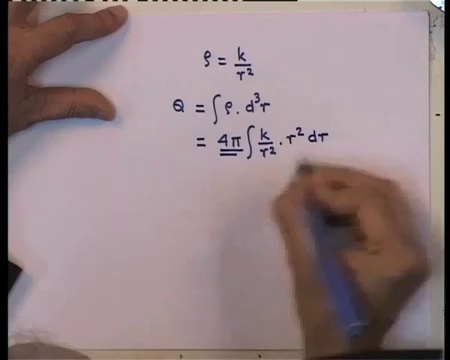 ρ = k/r²
Q = ∫ ρ. d³r
= 4π ∫ k/r² . r² dr